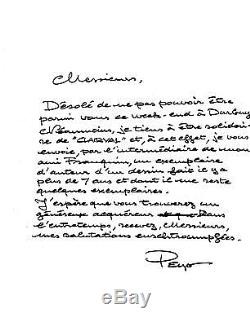 Messieurs,
Désolé de ne pas pouvoir être
parmi vous ce week-end à Durbuy
Néanmoins, je tiens à être solidai-
re de "et, à cet effet, je vous
envoie, par l'intermédiaire de mon
ami Franquin, un exemplaire
d'auteur d'un dessin fait il y a
plus de 7 ans et dont il me reste
quelques exemplaires.
J'espère que vous trouverez un
généreux acquéreur Dans
l'entretemps, recevez, Messieurs,
mes salutations enschtroumpfées.
Peyo
ebay